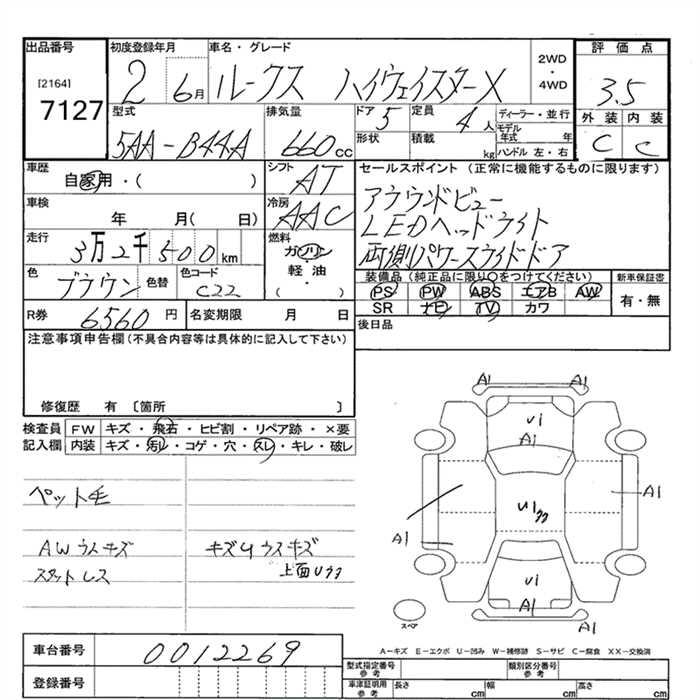 出品番号
[2164]
7127
初度登録年月
2 6月
車名・グレード
ルークス ハイウェイスターX
2WD
・
4WD
評価点
3.5
外装 内装
C C
型式
5AA-B44A
排気量
660cc
ドア 5
形状
定員 4人
積載 kg
ディーラー・並行
モデル年式 年
ハンドル 左・右
車歴
自家用・( )
シフト
AT
セールスポイント (正常に機能するものに限ります)
アラウンドビュー
LEDヘッドライト
両側パワースライドドア
車検
年 月( 日)
冷房
AAC
走行
3万2千500km
燃料
ガソリン
・
軽油
( )
色
ブラウン
色替
色コード
C22
装備品(純正品に限り○をつけてください)
PS PW ABS エアB AW
SR ナビ TV カワ
新車保証書
有・無
後日品
R券 6560円
名変期限 月 日
注意事項申告欄(不具合内容等は具体的に記入して下さい)
修復歴 有 〔箇所 〕
検査員記入欄
FW キズ・飛石・ヒビ割・リペア跡・×要
内装 キズ・汚レ・コゲ・穴・スレ・キレ・破レ
ペット毛
AWウスキズ
スタットレス
キズ4ウスキズ
上面U33
A1 A1
U1
A1
U133
A1
A1
U1
A1
A1
スペア
A-キズ E-エクボ U-凹み W-補修跡 S-サビ C-腐食 XX-交換済
車台番号 0012269
登録番号
型式指定番号 参考
類別区分番号 参考
車津証明用 参考
長さ cm
幅 cm
高さ cm